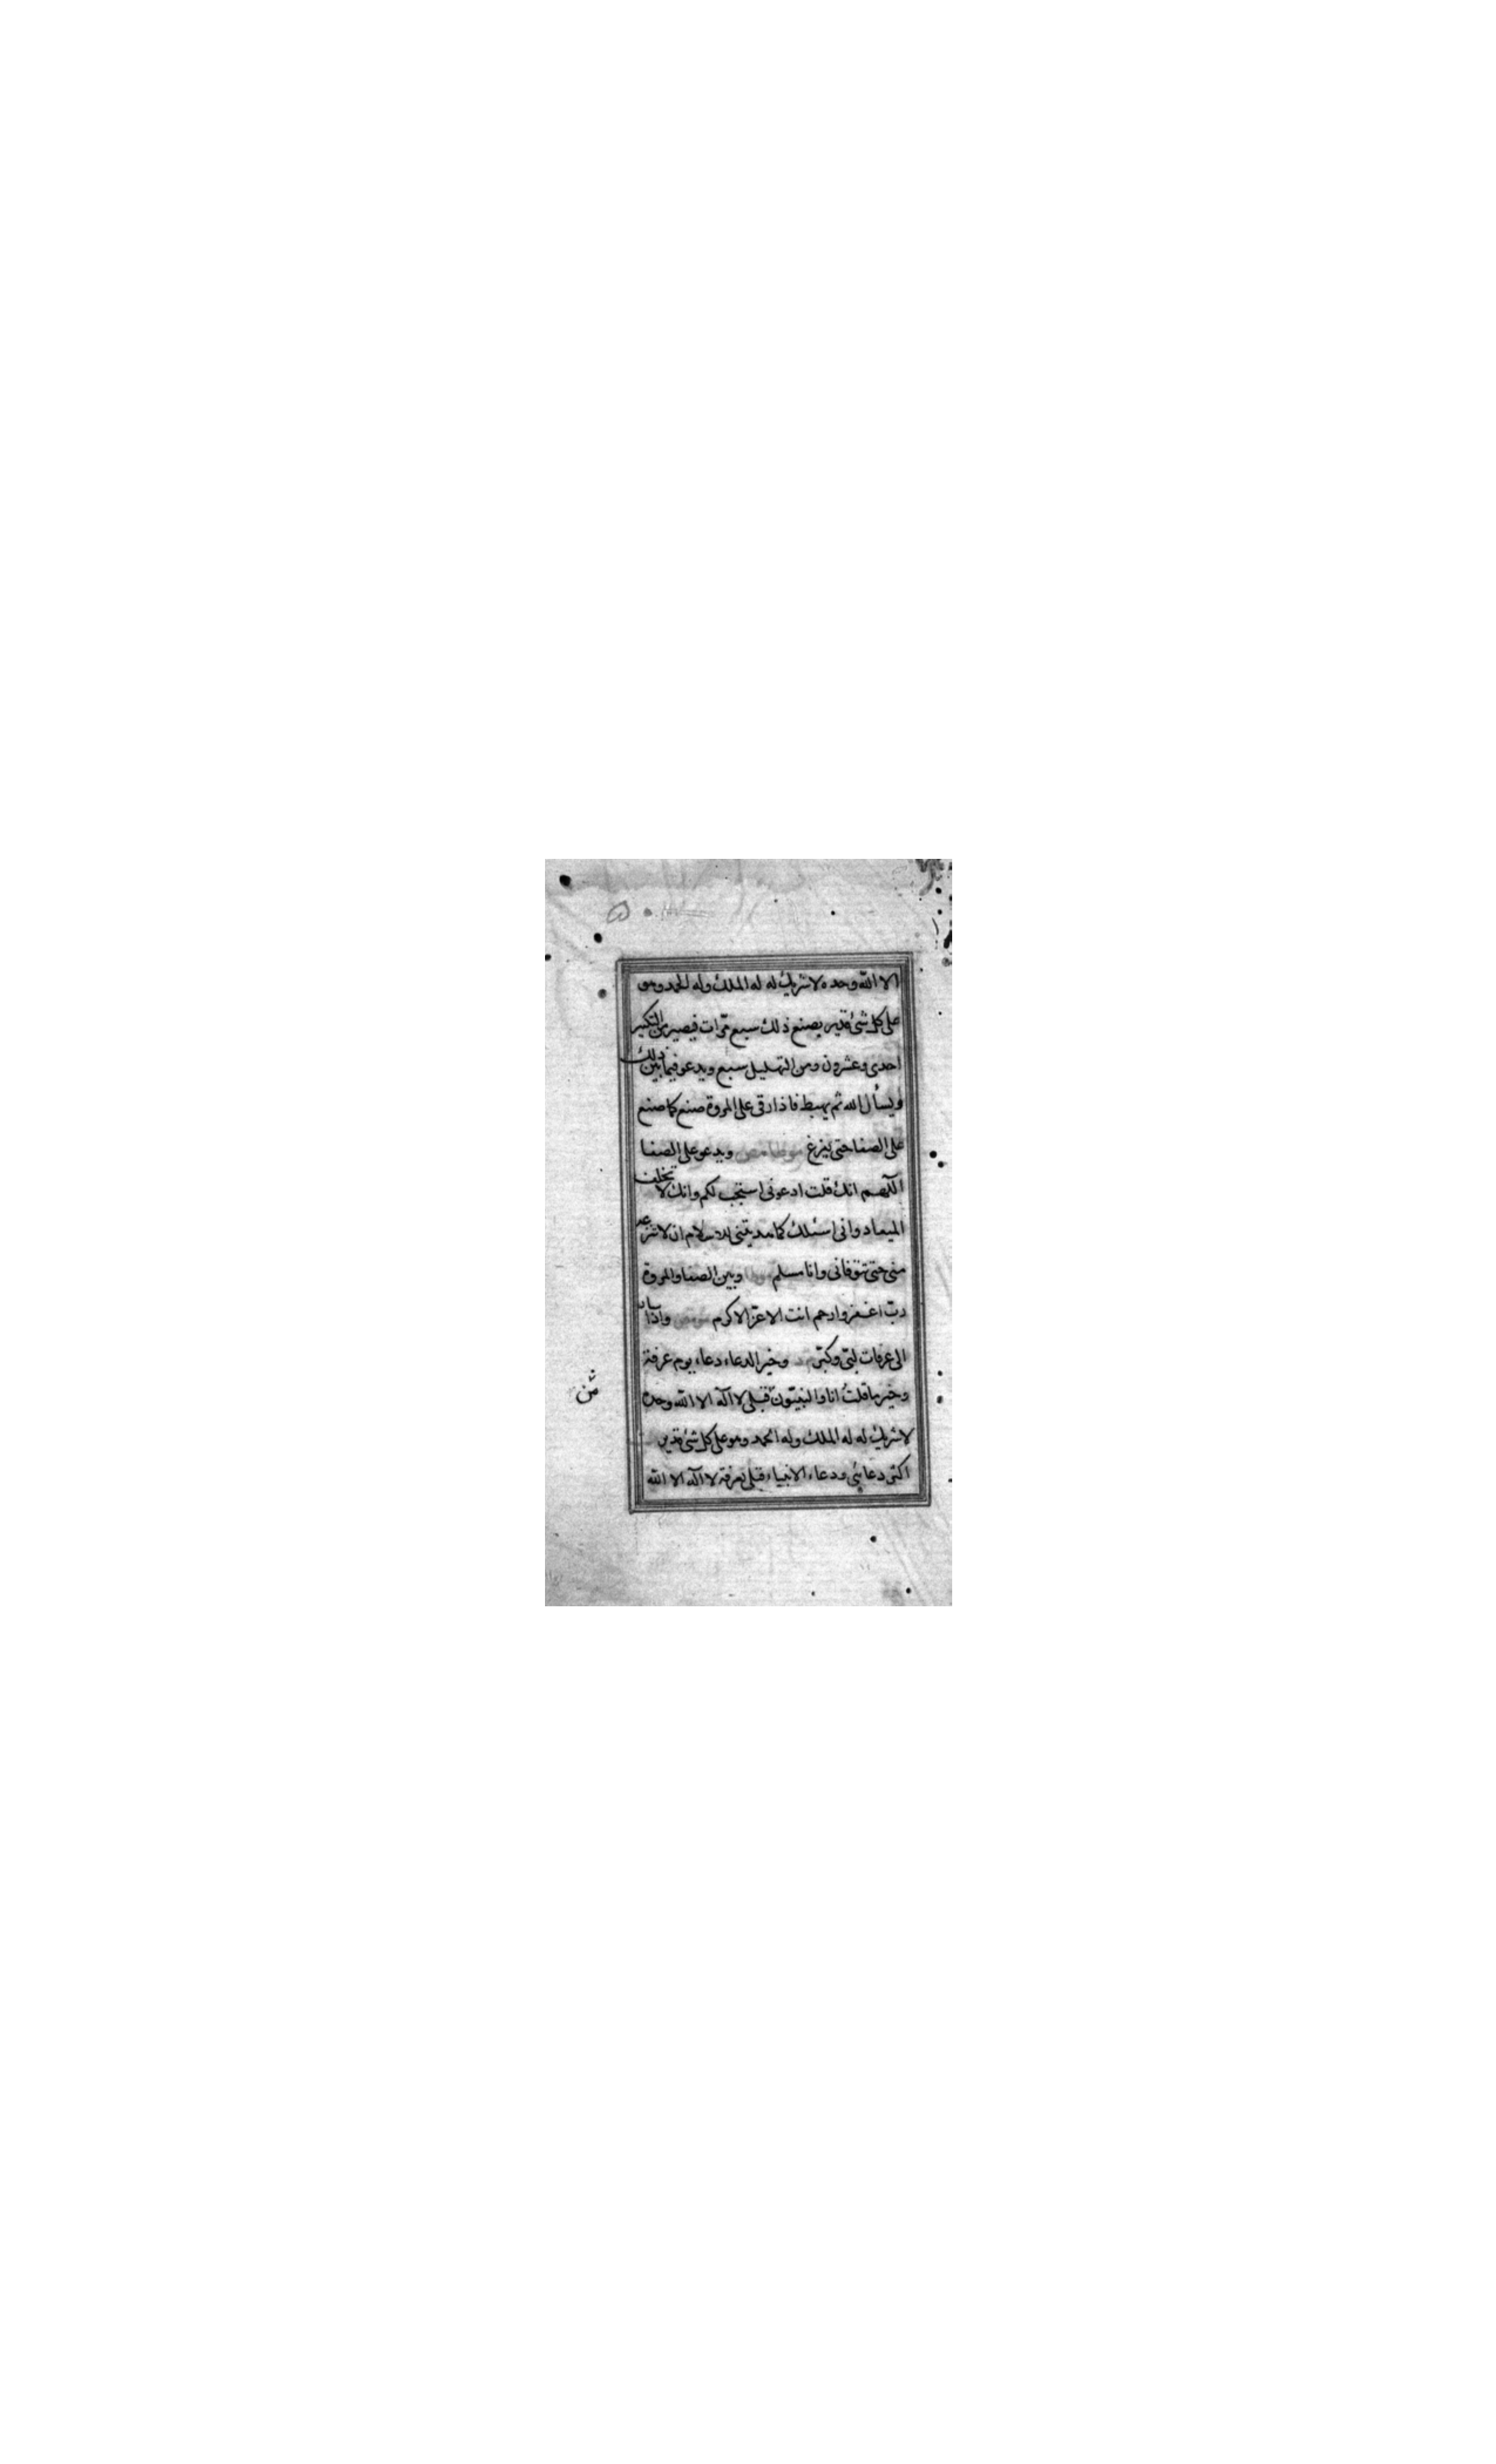 الا الله وحده لا شريك له له الملك وله الحمد وهو
على كل شئ قدير يصنع ذلك سبع مرّات فيصير من التكبير
احدى وعشرون ومن التهليل سبع ويدعو فيما بين ذلك
ويسأل الله ثم يهبط فاذا رقى على المروة صنع كما صنع
على الصفا حتى يفرغ موطا مص ويدعو على الصفا
اللّهم انك قلت ادعونى استجب لكم وانك لا تخلف
الميعاد وانى اسئلك كما هديتنى للاسلام ان لا تنزعه
منى حتى تتوفانى وانا مسلم موطا وبين الصفا والمروة
ربّ اغفر وارحم انت الاعزّ الاكرم واذا سار
الى عرفات لبّى وكبّر م د وخير الدعاء دعاء يوم عرفة
وخير ما قلتُ انا والنبيّون قبلى لا اله الا الله وحده
لا شريك له له الملك وله الحمد وهو على كل شئ قدير
اكثر دعائى ودعاء الانبياء قبلى بعرفة لا اله الا الله